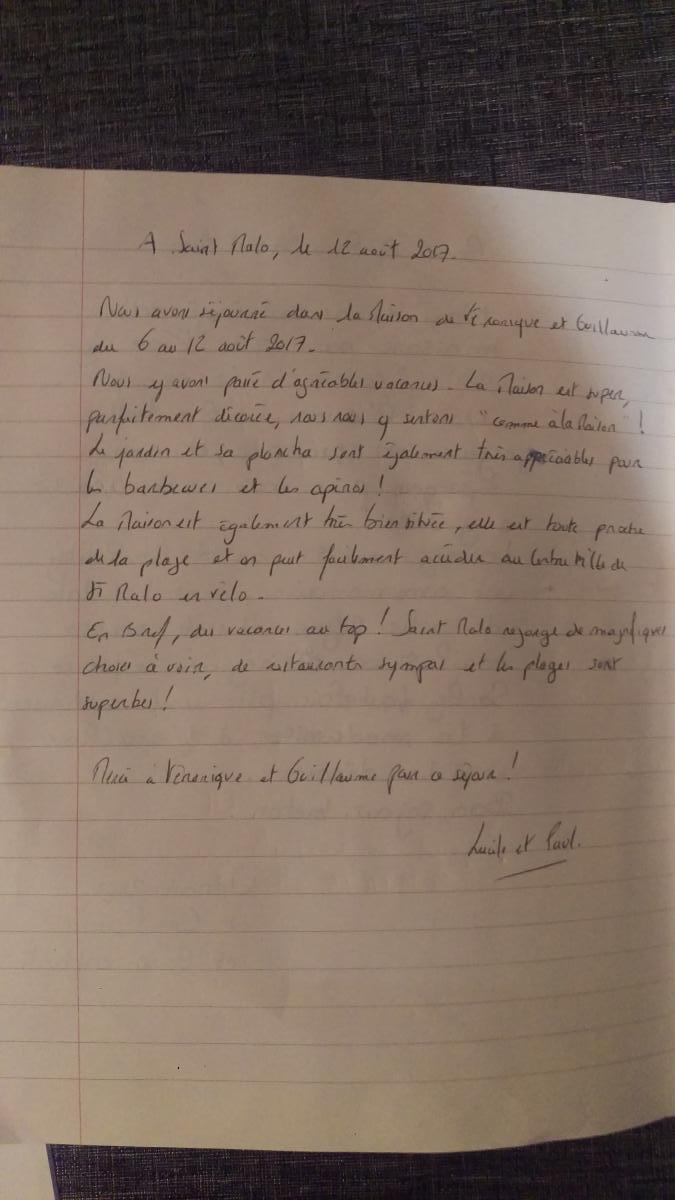 A Saint Malo, le 12 août 2017.
Nous avons séjourné dans la Maison de Véronique et Guillaume
du 6 au 12 août 2017.
Nous y avons passé d'agréables vacances. La Maison est super,
parfaitement décorée, nous nous y sentons "comme à la Maison" !
Le jardin et sa plancha sont également très appréciables pour
les barbecues et les apéros !
La Maison est également très bien située, elle est toute proche
de la plage et on peut facilement accéder au Centre Ville de
St Malo en vélo.
En Bref, des vacances au top ! Saint Malo regorge de magnifiques
choses à voir, de restaurants sympas et les plages sont
superbes !
Merci à Véronique et Guillaume pour ce séjour !
Lucile et Paul.